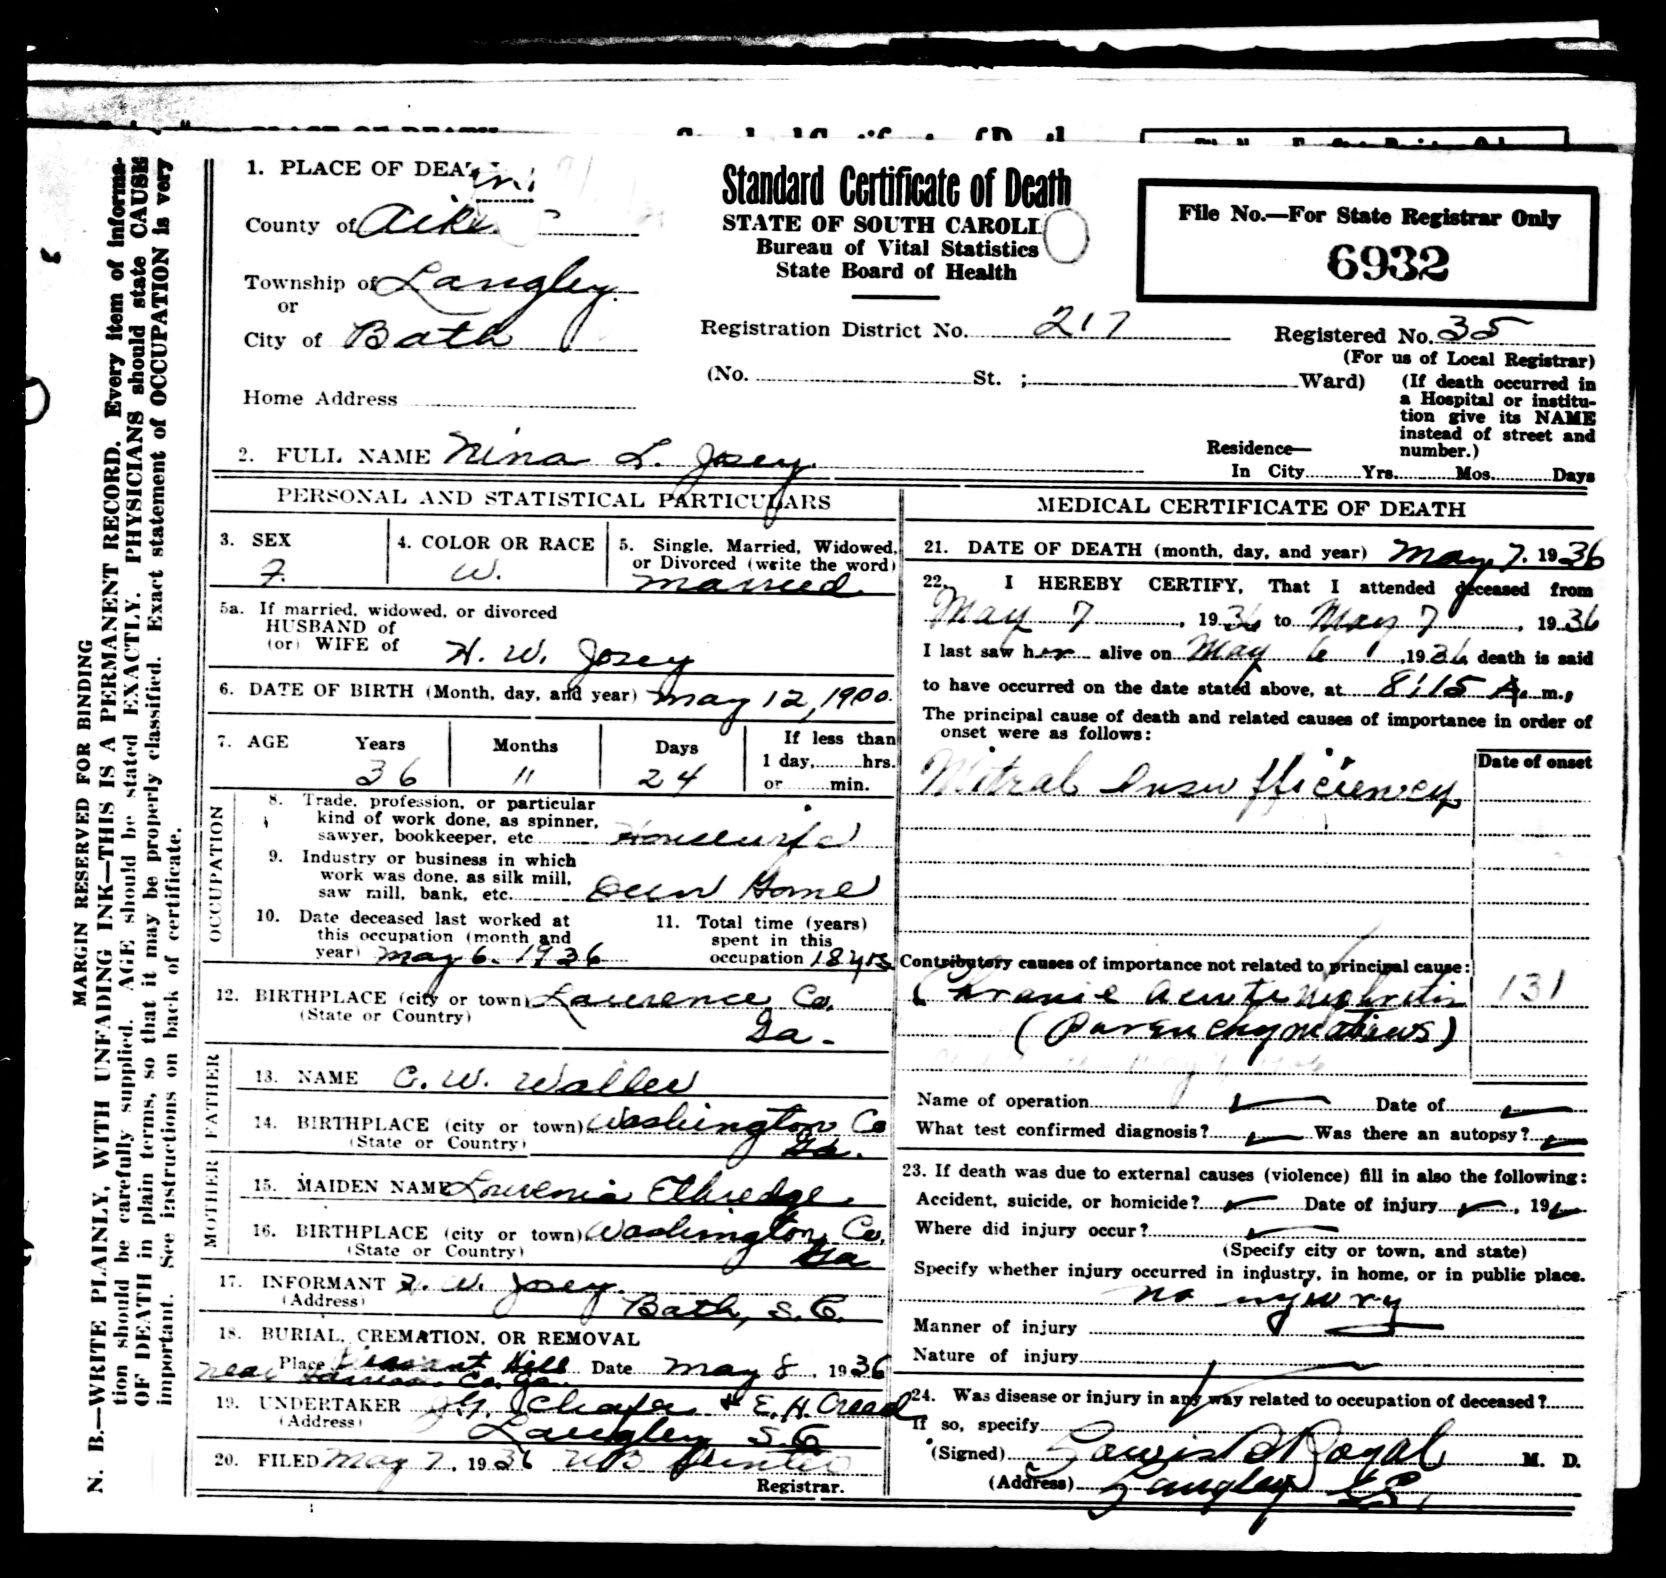 1. PLACE OF DEATH
County of Aiken
Township of Langley
or
City of Bath
Home Address
Standard Certificate of Death
STATE OF SOUTH CAROLI
Bureau of Vital Statistics
State Board of Health
File No.—For State Registrar Only
6932
Registration District No. 217
Registered No. 35
(For us of Local Registrar)
(No. St. ; Ward)
(If death occurred in
a Hospital or institu-
tion give its NAME
instead of street and
number.)
2. FULL NAME Nina L. Josey
Residence—
In City Yrs. Mos. Days
PERSONAL AND STATISTICAL PARTICULARS
3. SEX
F.
4. COLOR OR RACE
W.
5. Single, Married, Widowed,
or Divorced (write the word)
Married
5a. If married, widowed, or divorced
HUSBAND of
(or) WIFE of H. W. Josey
6. DATE OF BIRTH (Month, day, and year) May 12, 1900.
7. AGE Years Months Days
36 11 24
If less than
1 day, hrs.
or min.
OCCUPATION
8. Trade, profession, or particular
kind of work done, as spinner,
sawyer, bookkeeper, etc Housewife
9. Industry or business in which
work was done, as silk mill,
saw mill, bank, etc. Own Home
10. Date deceased last worked at
this occupation (month and
year) May 6. 1936
11. Total time (years)
spent in this
occupation 18 yrs
12. BIRTHPLACE (city or town) Lawrence Co.
(State or Country) Ga.
FATHER
13. NAME C. W. Waller
14. BIRTHPLACE (city or town) Washington Co
(State or Country) Ga.
MOTHER
15. MAIDEN NAME Lourenia Ethredge
16. BIRTHPLACE (city or town) Washington Co.
(State or Country) Ga
17. INFORMANT H. W. Josey.
(Address) Bath, S.C.
18. BURIAL, CREMATION, OR REMOVAL
Place Pleasant Hill Date May 8, 1936
near Co. Ga.
19. UNDERTAKER J. G. & E. H. Cread
(Address) Langley S.C
20. FILED May 7, 1936
Registrar.
MEDICAL CERTIFICATE OF DEATH
21. DATE OF DEATH (month, day, and year) May 7. 1936
22. I HEREBY CERTIFY, That I attended deceased from
May 7, 1936 to May 7, 1936
I last saw her alive on May 6, 1936 death is said
to have occurred on the date stated above, at 8:15 A. m.,
The principal cause of death and related causes of importance in order of
onset were as follows:
Date of onset
Mitral Insufficiency
Contributory causes of importance not related to principal cause:
Chronic acute Nephritis 131
(Parenchymatous)
Name of operation Date of
What test confirmed diagnosis? Was there an autopsy?
23. If death was due to external causes (violence) fill in also the following:
Accident, suicide, or homicide? Date of injury , 19
Where did injury occur?
(Specify city or town, and state)
Specify whether injury occurred in industry, in home, or in public place.
no injury
Manner of injury
Nature of injury
24. Was disease or injury in any way related to occupation of deceased?
If so, specify
(Signed) Lewis D Royal M. D.
(Address) Langley S.C.
MARGIN RESERVED FOR BINDING
N. B.—WRITE PLAINLY, WITH UNFADING INK—THIS IS A PERMANENT RECORD. Every item of informa-
tion should be carefully supplied. AGE should be stated EXACTLY. PHYSICIANS should state CAUSE
OF DEATH in plain terms, so that it may be properly classified. Exact statement of OCCUPATION is very
important. See instructions on back of certificate.